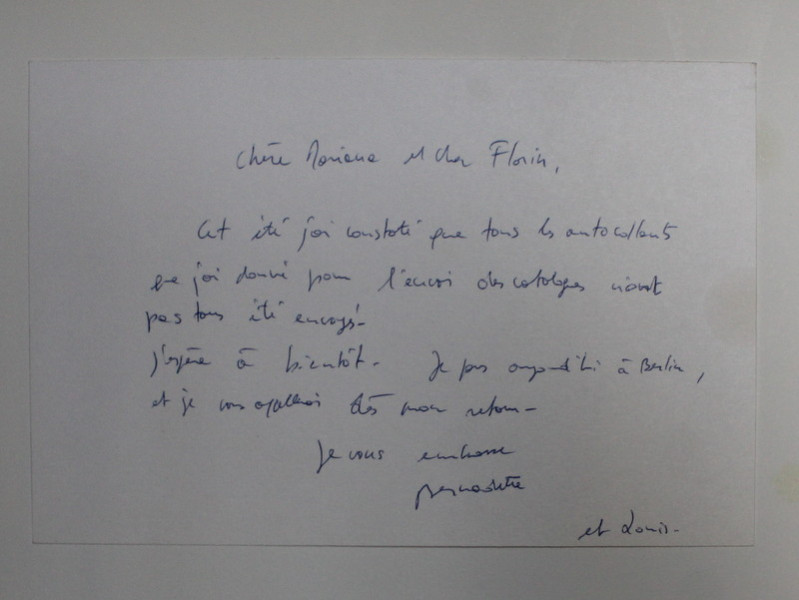 Chère Mariana et cher Florin,
Cet été j'ai constaté que tous les autocollants
que j'ai donné pour l'envoi des catalogues n'ont
pas tous été envoyés-
J'espère à bientôt- Je pars aujourd'hui à Berlin,
et je vous appellerai dès mon retour-
Je vous embrasse
Bernadette
et Louis-